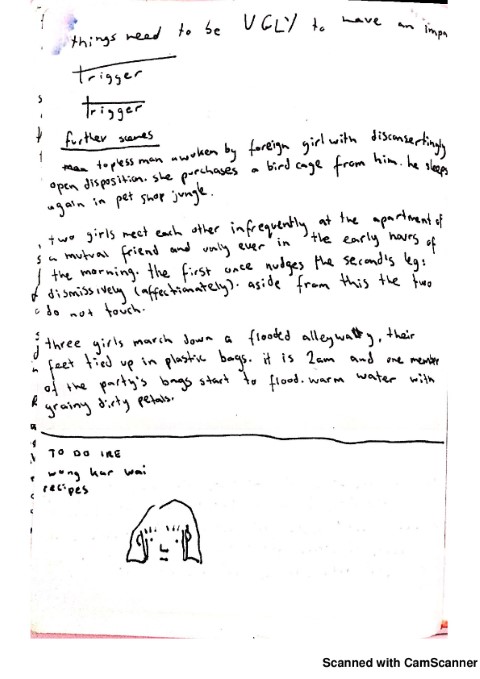 things need to be UGLY to have an impa
Trigger
Trigger
further scenes
topless man awoken by foreign girl with disconsertingly
open disposition. she purchases a bird cage from him. he sleeps
again in pet shop jungle.
two girls meet each other infrequently at the apartment of
a mutual friend and only ever in the early hours of
the morning. the first once nudges the second's leg:
dismissively (affectionately). aside from this the two
do not touch.
three girls march down a flooded alleyway, their
feet tied up in plastic bags. it is 2am and one member
of the party's bags start to flood. warm water with
grainy dirty petals.
TO DO IRE
wong kar wai
recipes
Scanned with CamScanner